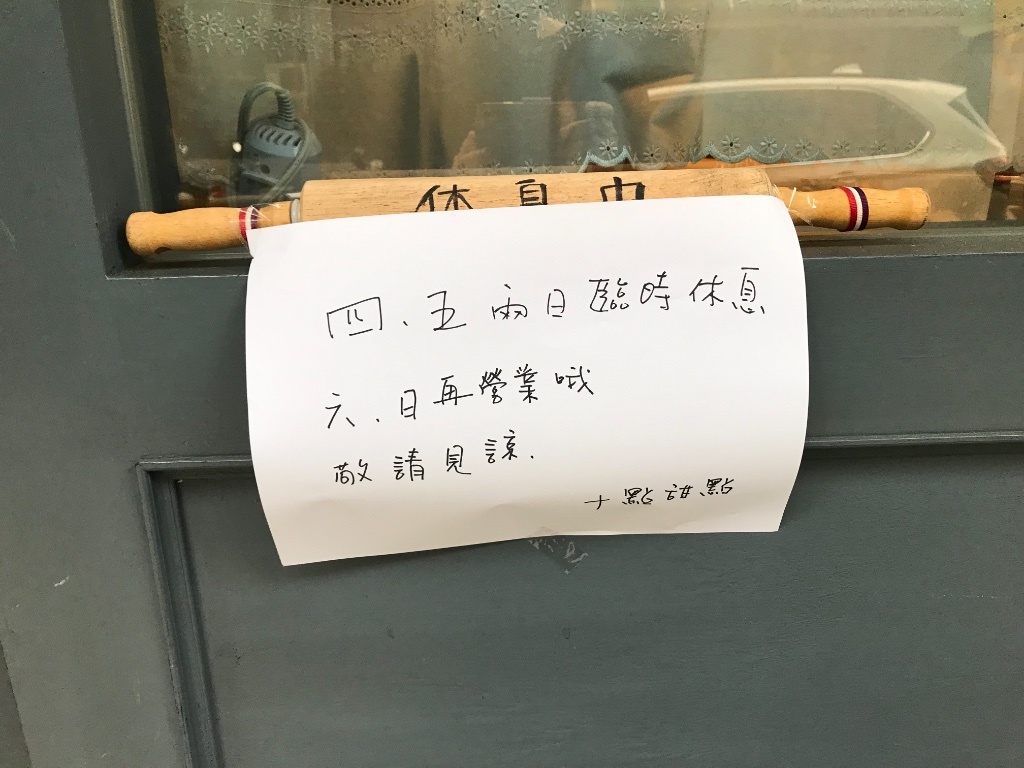 休息中
四、五兩日臨時休息
六、日再營業哦
敬請見諒.
十點甜點